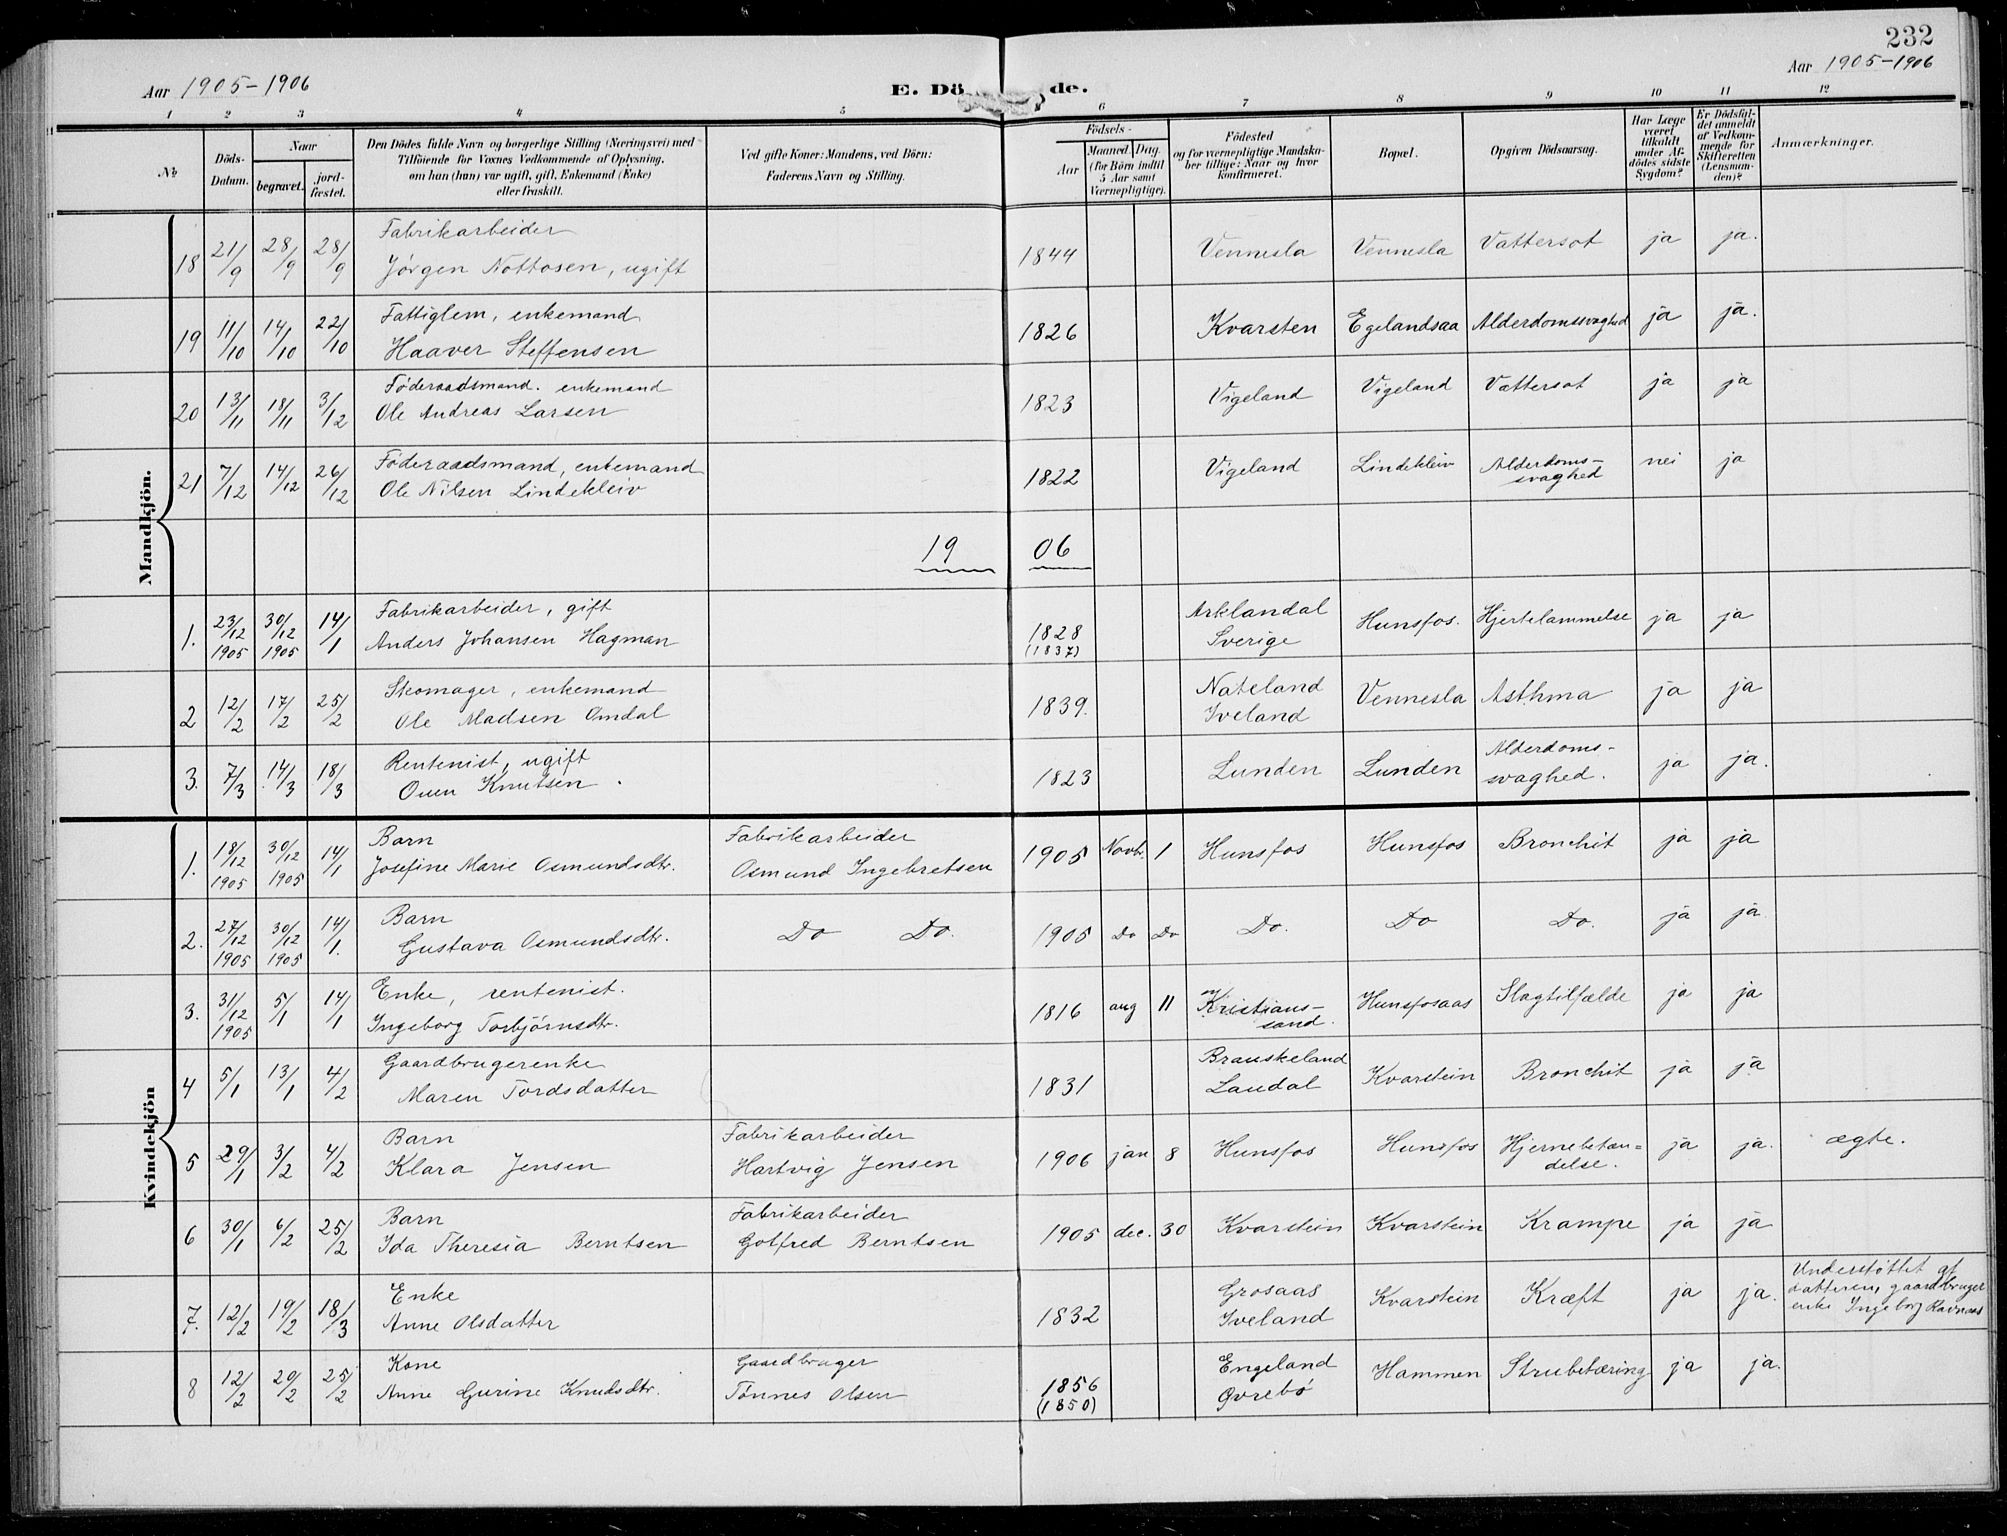 232
Aar 1905-1906
E. Dö de.
Aar 1905-1906
1 2 3 4 5 6 7 8 9 10 11 12
№
Döds-Datum.
Naar
begravet.
jord-fæstet.
Den Dödes fulde Navn og borgerlige Stilling (Næringsvei) med
Tilföiende for Voxnes Vedkommende af Oplysning,
om han (hun) var ugift, gift, Enkemand (Enke)
eller fraskilt.
Ved gifte Koner: Mandens, ved Börn:
Faderens Navn og Stilling.
Födsels-
Aar
Maaned. Dag.
(for Börn indtil
5 Aar samt
Værnepligtige).
Födested
og for værnepligtige Mandska-
ber tillige: Naar og hvor
konfirmeret.
Bopæl.
Opgiven Dödsaarsag.
Har Læge
været
tilkaldt
under Af-
dödes sidste
Sygdom?
Er Dödsfal-
det anmeldt
af Vedkom-
mende for
Skifteretten
(Lensman-
den)?
Anmærkninger.
Mandkjön.
18 21/9 28/9 28/9 Fabrikarbeider
Jørgen Nottosen, ugift 1844 Vennesla Vennesla Vattersot ja ja.
19 11/10 14/10 22/10 Fattiglem, enkemand
Haaver Steffensen 1826 Kvarsten Egelandsaa Alderdomssvaghed ja ja.
20 13/11 18/11 3/12 Føderaadsmand. enkemand
Ole Andreas Larsen 1823 Vigeland Vigeland Vattersot ja ja
21 7/12 14/12 26/12 Føderaadsmand, enkemand
Ole Nilsen Lindekleiv 1822 Vigeland Lindekleiv Alderdoms-
svaghed nei ja
19 06
1. 23/12 1905 30/12 1905 14/1 Fabrikarbeider, gift
Anders Johansen Hagman 1828 (1837) Arklandal
Sverige Hunsfos. Hjertelammelse ja ja
2 12/2 17/2 25/2 Skomager, enkemand
Ole Madsen Omdal 1839. Nateland
Iveland Vennesla Asthma ja ja
3. 7/3 14/3 18/3 Rentenist, ugift
Ouen Knutsen 1823 Lunden Lunden Alderdoms-
svaghed. ja ja.
Kvindekjön
1. 18/12 1905 30/12 1905 14/1 Barn
Josefine Marie Osmundsdtr. Fabrikarbeider
Osmund Ingebretsen 1905 Novbr. 1 Hunsfos Hunsfos Bronchit ja ja
2. 27/12 1905 30/12 1905 14/1. Barn
Gustava Osmundsdtr. Do Do. 1905 Do Do Do. Do Do. ja ja
3. 31/12 1905 5/1 14/1 Enke, rentenist.
Ingeborg Torbjørnsdtr. 1816 aug 11 Kristians-
sand. Hunsfosaas Slagtilfælde ja ja
4 5/1 13/1 4/2 Gaardbrugerenke
Maren Tordsdatter 1831 Brauskeland
Laudal Kvarstein Bronchit ja ja
5 29/1 3/2 4/2 Barn
Klara Jensen Fabrikarbeider
Hartvig Jensen 1906 jan 8 Hunsfos Hunsfos Hjernebetæn=
delse. ja ja. ægte.
6 30/1 6/2 25/2 Barn
Ida Theresia Berntsen Fabrikarbeider
Gotfred Berntsen 1905 dec. 30 Kvarstein Kvarstein Krampe ja ja
7. 12/2 19/2 18/3 Enke
Anne Olsdatter 1832 Grosaas
Iveland Kvarstein Kræft ja ja. Understøttet af
datteren, gaardbruger
enke Ingeborg Ravnaas
8 12/2 20/2 25/2 Kone
Anne Gurine Knudsdtr. Gaardbruger
Tønnes Olsen 1856 (1850) Engeland
Øvrebø Hommen Strubetæring ja ja.